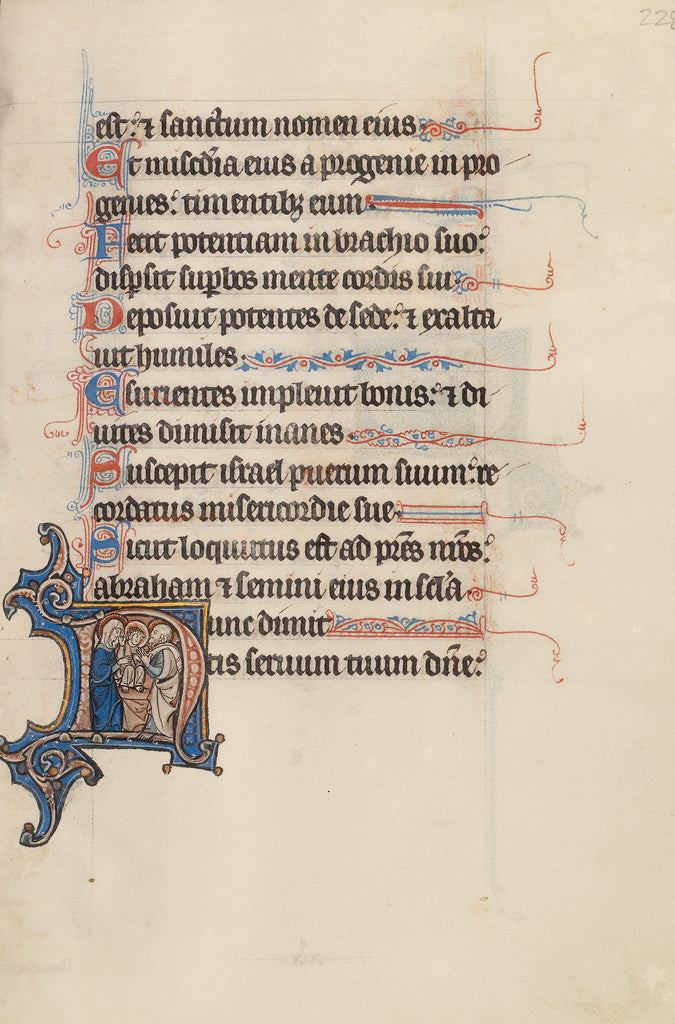 228
est: ⁊ sanctum nomen eius
Et misc̄dia eius a progenie in pro
genies: timentibꝫ eum.
Fecit potentiam in brachio suo:
dispsit supbos mente cordis sui.
Deposuit potentes de sede: ⁊ exalta
uit humiles.
Esurientes impleuit bonis: ⁊ di
uites dimisit inanes.
Suscepit israel puerum suum: re
cordatus misericordie sue.
Sicut locutus est ad pr̄es nr̄os:
abraham ⁊ semini eius in scl̄a.
Nunc dimit
tis seruum tuum dn̄e: